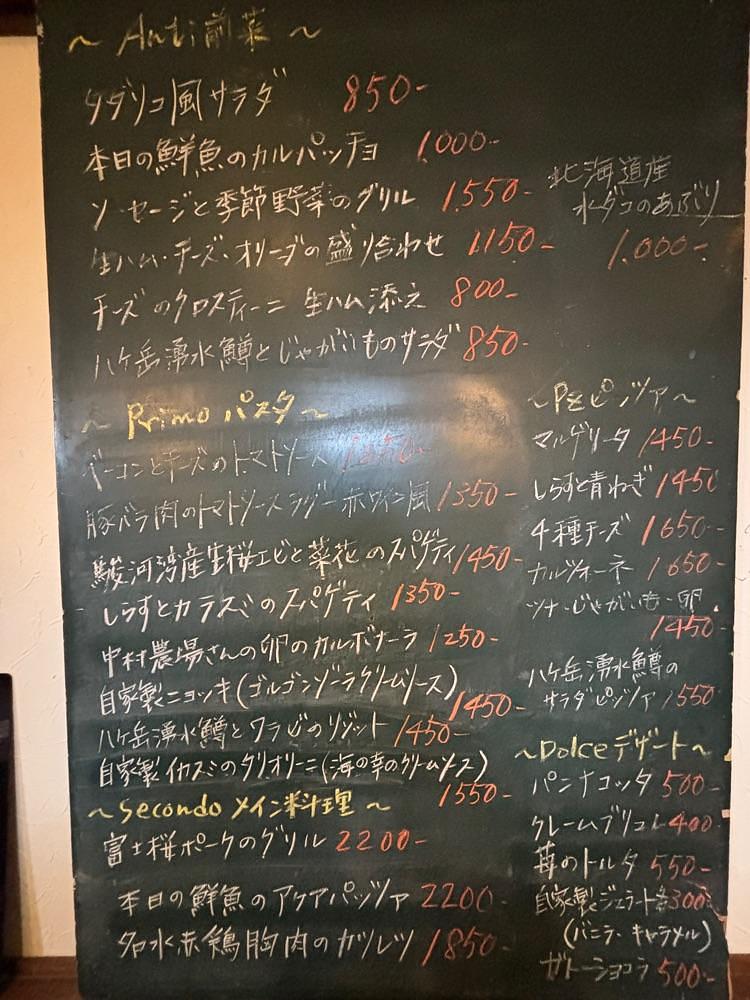 ~ Anti前菜 ~
タダリコ風サラダ 850-
本日の鮮魚のカルパッチョ 1.000-
ソーセージと季節野菜のグリル 1.550-
生ハム・チーズ・オリーブの盛り合わせ 1.150-
チーズのクロスティーニ 生ハム添え 800-
八ケ岳湧水鱒とじゃがいものサラダ 850-
北海道産
水ダコのあぶり
1.000-
~ Primo パスタ ~
ベーコンとチーズのトマトソース
豚バラ肉のトマトソース ラグー 赤ワイン風 1350-
駿河湾産生桜エビと菜花のスパゲティ 1450-
しらすとカラスミのスパゲティ 1350-
中村農場さんの卵のカルボナーラ 1250-
自家製ニョッキ(ゴルゴンゾーラクリームソース)
1450-
八ケ岳湧水鱒とワラビのリゾット 1450-
自家製イカスミのタリオリーニ(海の幸のクリームソース)
1550-
~ Secondo メイン料理 ~
富士桜ポークのグリル 2200-
本日の鮮魚のアクアパッツァ 2200-
名水赤鶏胸肉のカツレツ 1850-
~ Pz ピッツァ ~
マルゲリータ 1450-
しらすと青ねぎ 1450
4種チーズ 1650-
カルツォーネ 1650-
ツナ・じゃがいも・卵
1450-
八ケ岳湧水鱒の
サラダピッツァ 1550
~ Dolce デザート ~
パンナコッタ 500-
クレームブリュレ 400-
苺のトルタ 550-
自家製ジェラート各300-
(バニラ・キャラメル)
ガトーショコラ 500-